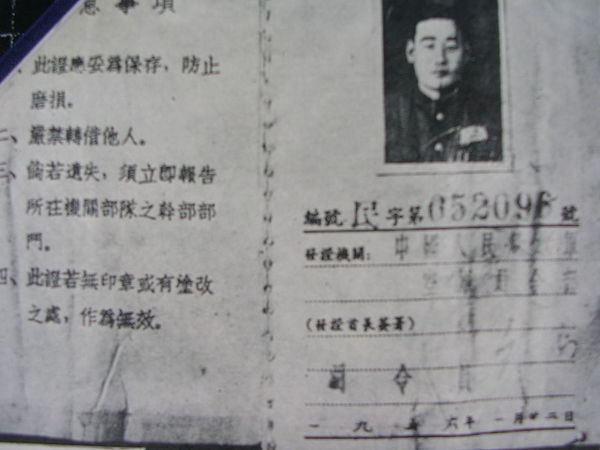 意事項
一、此證應妥為保存，防止
磨損。
二、嚴禁轉借他人。
三、倘若遺失，須立即報告
所在機關部隊之幹部部
門。
四、此證若無印章或有塗改
之處，作為無效。
編號 民 字第 052096 號
發證機關: 中國人民
(發證首長簽署)
副令員
一九五六年一月廿二日